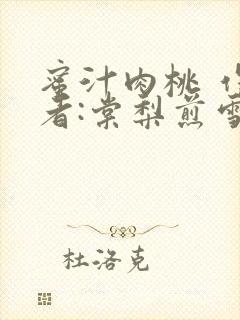 蜜汁肉桃 作
者:棠梨煎雪
杜洛克